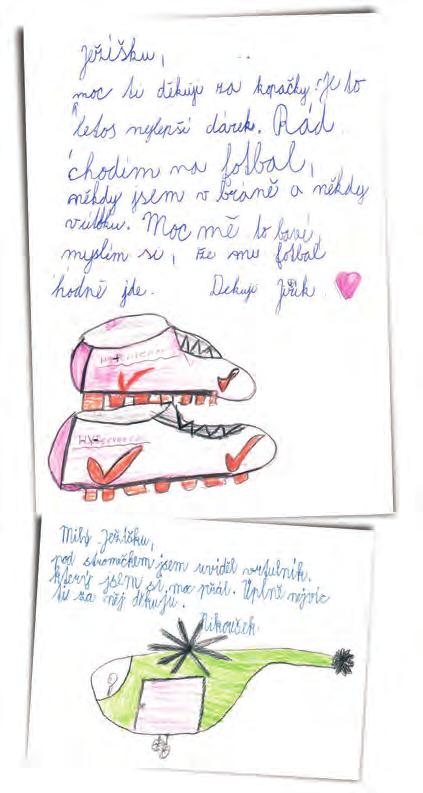 Ježíšku,
moc ti děkuji za kopačky. Je to
letos nejlepší dárek. Rád
chodím na fotbal,
někdy jsem v bráně a někdy
v útoku. Moc mě to baví,
myslím si, že mu fotbal
hodně jde. Děkuji Jiřík
Milý Ježíšku,
pod stromečkem jsem uviděl vrtulník,
který jsem si moc přál. Úplně nejvíc
ti za něj děkuju.
Nikoušek